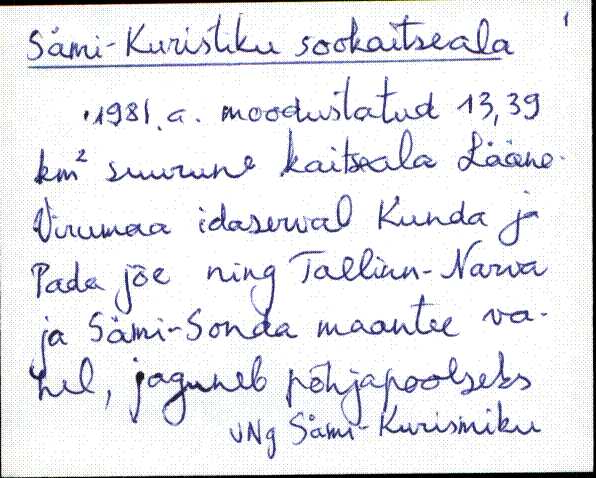 1
Sämi-Kuristiku sookaitseala
1981. a. moodustatud 13,39
km² suurune kaitseala Lääne-
Virumaa idaserval Kunda ja
Pada jõe ning Tallinn-Narva
ja Sämi-Sonda maantee va-
hel, jaguneb põhjapoolseks
Sämi-Kurismiku